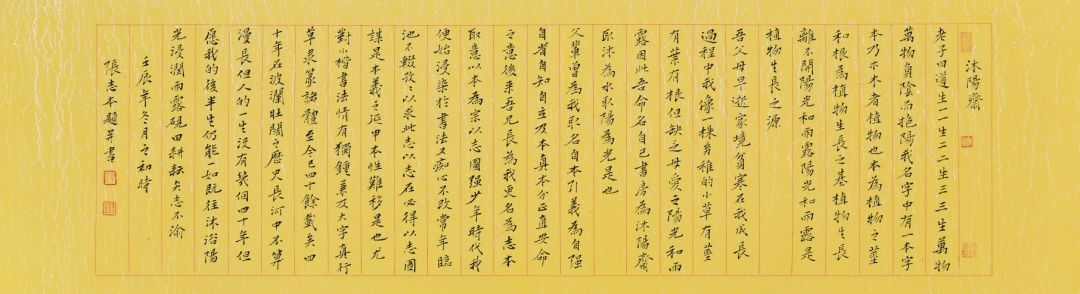 沐陽齋
老子曰道生一一生二二生三三生萬物
萬物負陰而抱陽我名字中有一本字
本乃木木者植物也本為植物之莖
和根為植物生長之基植物生長
離不開陽光和雨露陽光和雨露是
植物生長之源
吾父母早逝家境貧寒在我成長
過程中我像一株多稚的小草有莖
有葉有根但缺之母愛之陽光和雨
露因此吾命名自己書房為沐陽齋
取沐為水取陽為光是也
父輩曾為我取名自本引義為自強
自省自知自立及本真本分正直安命
之意後來吾兄長為我更名為志本
取意以本為宗以志圖强少年時代我
便始浸染於書法又痴心不改常年臨
池不輟孜孜以求此志以志在必得以志圖
謀是本義之延申本性難移是也尤
對小楷書法情有獨鍾兼及大字真行
草隶篆諸體至今已四十餘載矣四
十年在波瀾壯闊之歷史長河中不算
漫長但人的一生沒有幾個四十年但
愿我的後半生仍能一如既往沐浴陽
光浸潤雨露硯田耕耘矢志不渝
壬辰年冬月之初時
張志本題并書